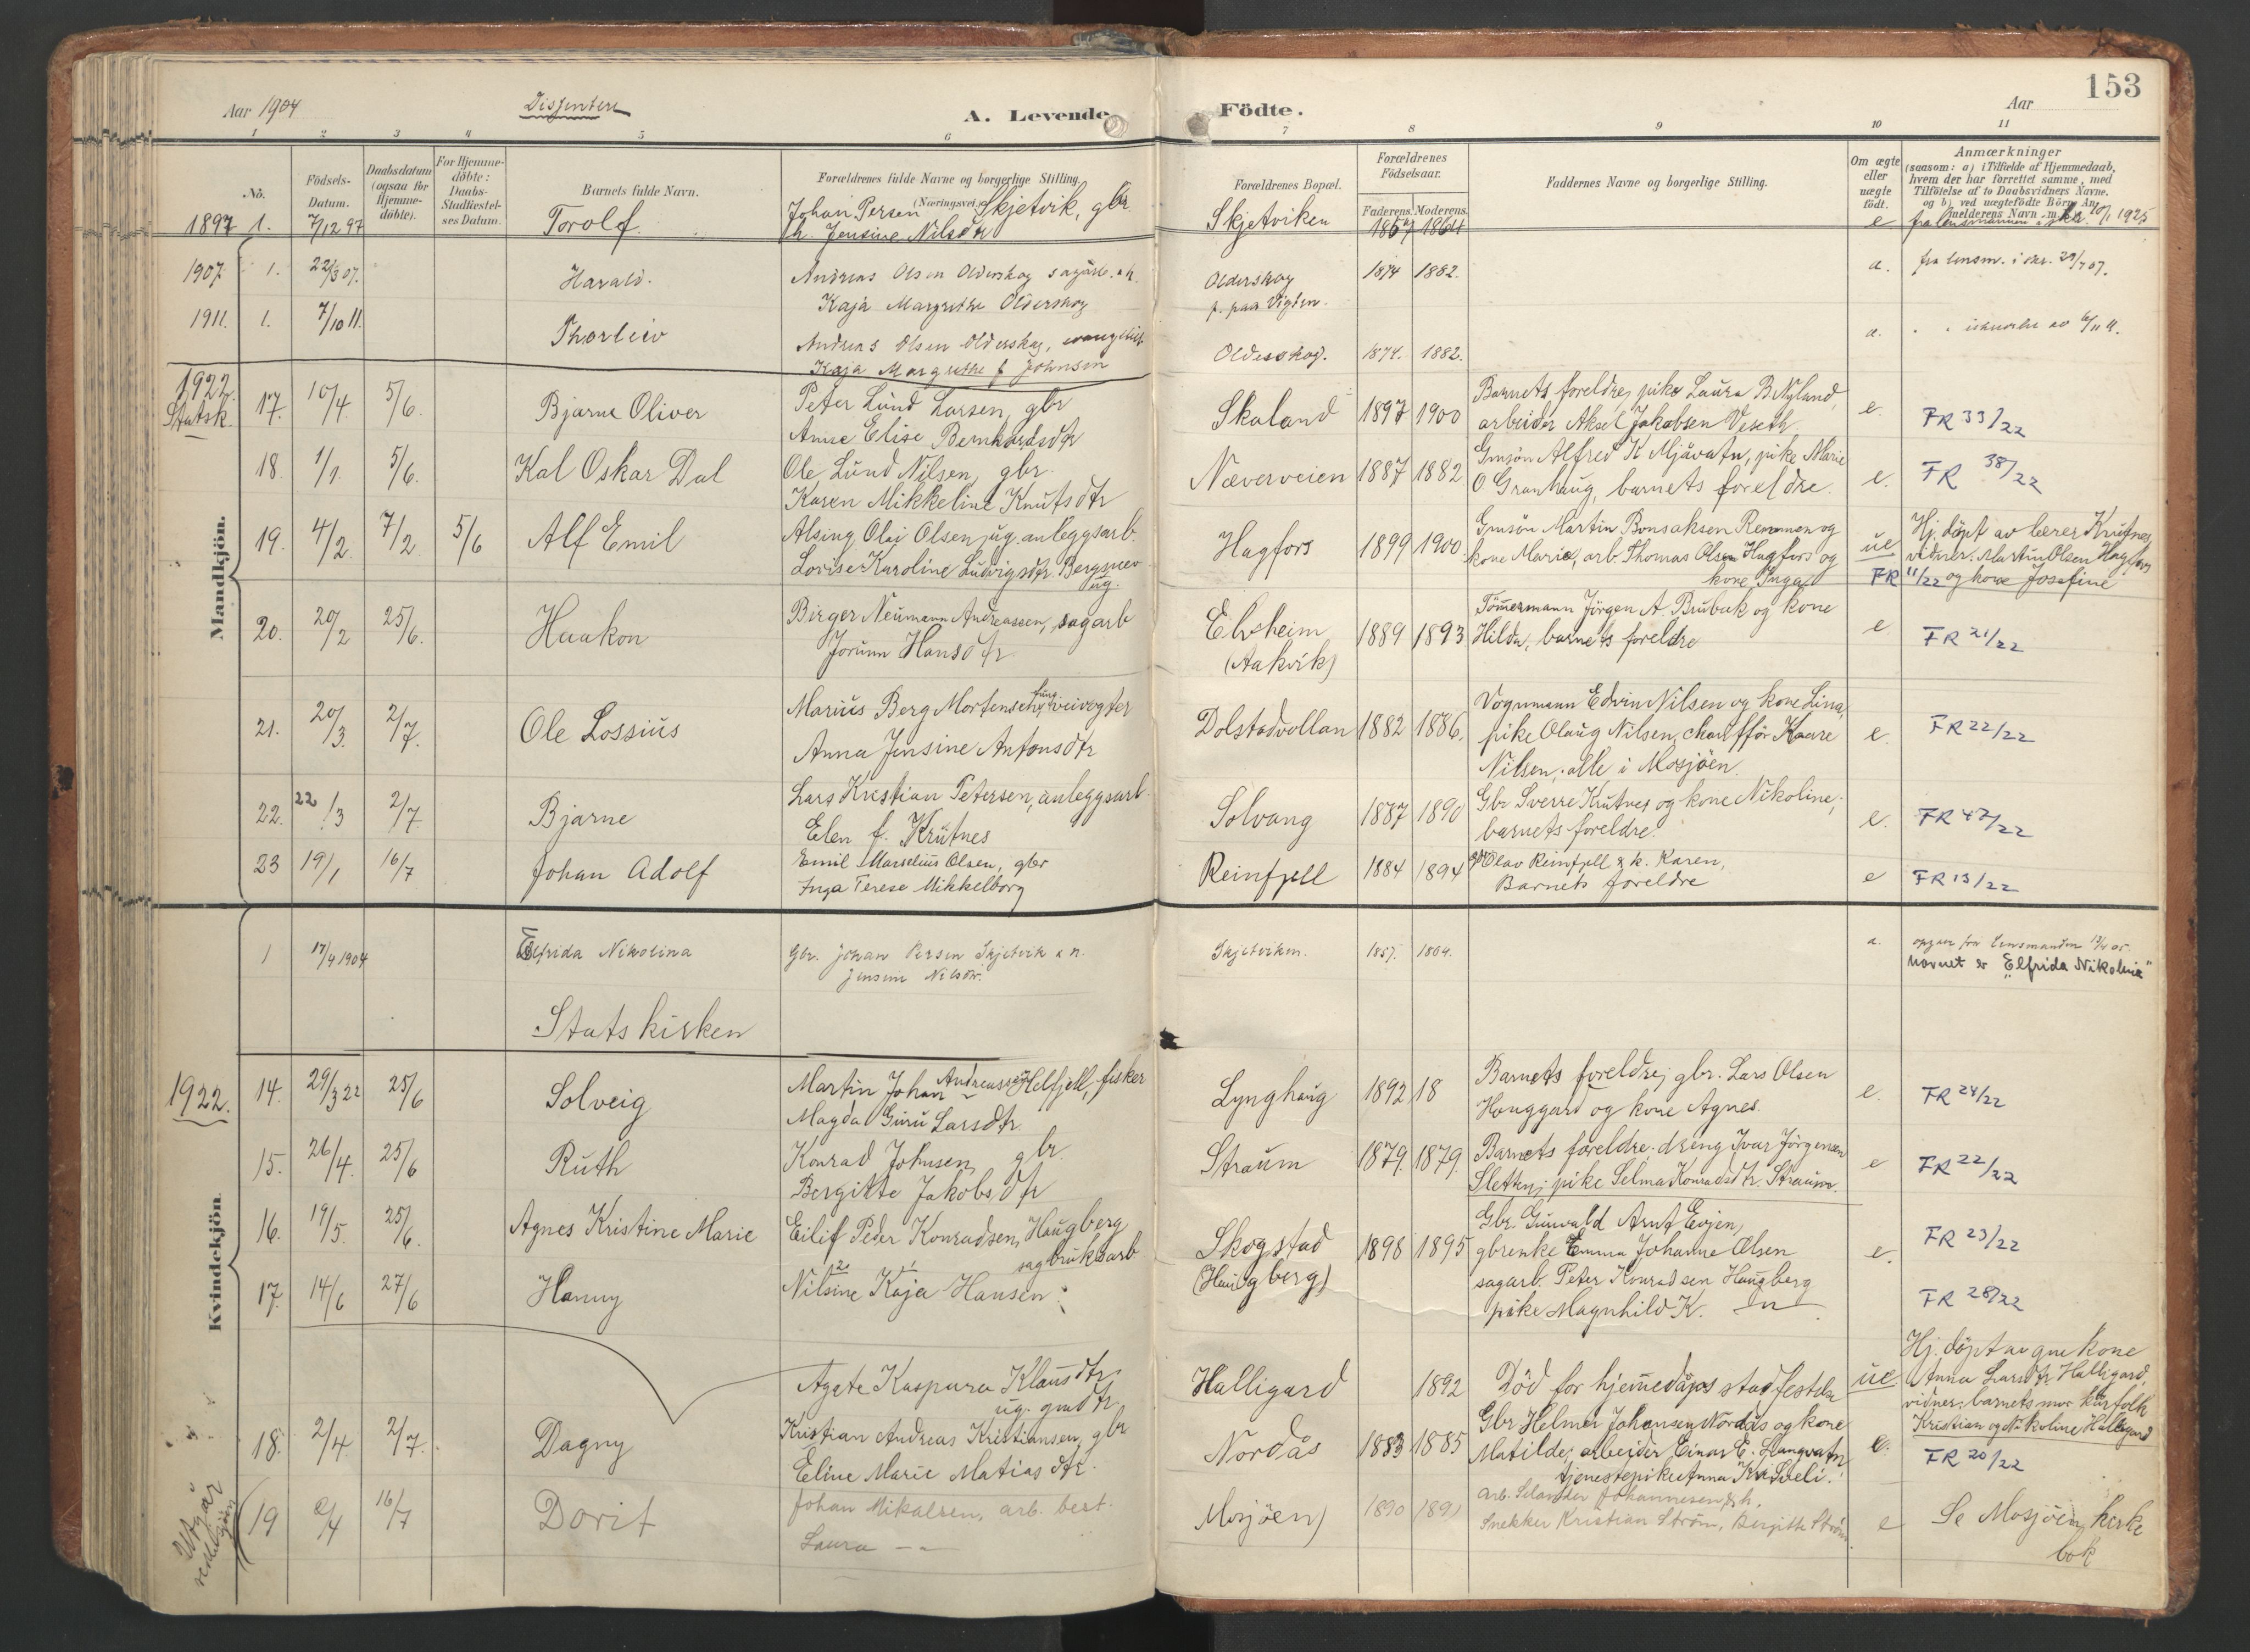 Aar 1904 Dissentere A. Levende Födte. Aar 153
1 2 3 4 5 6 7 8 9 10 11
No. Födsels-Datum. Daabsdatum (ogsaa for Hjemme-döbte). For Hjemme-döbte: Daabs-Stadfæstel-ses Datum. Barnets fulde Navn. Forældrenes fulde Navne og borgerlige Stilling. (Næringsvei.) Forældrenes Bopæl. Forældrenes Födselsaar. Faderens. Moderens. Faddernes Navne og borgerlige Stilling. Om ægte eller uægte födt. Anmærkninger
(saasom: a) i Tilfælde af Hjemmedaab, hvem der har forrettet samme, med Tilföielse af to Daabsvidners Navne, og b) ved uægtefödte Börn Anmelderens Navn m.
1897 1. 7/12 97 Torolf. Johan Persen Skjetvik, gbr. Skjetviken 1857 1864 e fra lensmannen 1925
h. Jensine Nilsdtr
1907 1. 22/3 07. Harald. Andreas Olsen Olderskog sagarb. Olderskog 1874 1882. a. fra lensm. i skr. 29/7 07.
Kaja Margrethe Olderskog f. paa Vigten.
1911. 1. 7/10 11. Thorleiv Andreas Olsen Olderskog, Olderskog. 1874. 1882. a.
Kaja Margrethe f Johnsen
Mandkjön.
1922. Statsk. 17. 10/4. 5/6. Bjarne Oliver Peter Lund Larsen, gbr Skaland 1897 1900 Barnets foreldre, pike Laura B. Nyland, e. FR 33/22
Anne Elise Bernhardsdtr arbeider Aksel Jakobsen Veseth
18. 1/1. 5/6. Kal Oskar Dal Ole Lund Nilsen, gbr. Næverveien 1887 1882 Gmsön Alfred K Mjåvatn, pike Marie e. FR 38/22
Karen Mikkeline Knutsdtr O Granhaug, barnets foreldre.
19. 4/2. 7/2. 5/6 Alf Emil Alsing Olai Olsen, ug. anleggsarb. Hagfors 1899 1900. Gmsön Martin Bonsaksen Remmen og ue Hj. döpt av lærer Krutnes,
Lovise Karoline Ludvigsdtr. Bergsnev ug. kone Marie, arb. Thomas Olsen Hagfors og vidner. Martin Olsen Hagfors
kone Inga FR 11/22 og kone Josefine
20. 20/2 25/6. Haakon Birger Neumann Andreassen, sagarb Elvsheim 1889 1893 Tömmermann Jörgen A Brubak og kone e FR 21/22
Jorunn Hansdtr (Aakvik) Hilda, barnets foreldre
21. 20/3. 2/7. Ole Lossius Marius Berg Mortensen, fung. veivogter Dolstadvollan 1882 1886. Vognmann Edvin Nilsen og kone Lina, e. FR 22/22
Anna Jensine Antonsdtr pike Olaug Nilsen, chaufför Kaare
Nilsen, alle i Mosjöen.
22. 22/3 2/7. Bjarne Lars Kristian Petersen, anleggsarb. Solvang 1887 1890 Gbr Sverre Krutnes og kone Nikoline; e. FR 47/22
Elen f. Krutnes barnets foreldre.
23 19/1 16/7 Johan Adolf Emil Marselius Olsen, gbr Reinfjell 1884 1894 gbr Olav Reinfjell & k. Karen, e FR 13/22
Inga Terese Mikkelborg Barnets foreldre
Kvindekjön.
1 17/4 1904 Elfrida Nikolina Gbr. Johan Persen Skjetvik Skjetviken. 1857. 1864. a. opgav fra lensmanden
Jensine Nilsdtr. Navnet er "Elfrida Nikolina"
Statskirken
1922. 14. 29/3 22 25/6 Solveig Martin Johan Andreassen Helfjell, fisker Lynghaug 1892 18 Barnets foreldre, gbr. Lars Olsen e. FR 24/22
Magda Guru Larsdtr. Hauggard og kone Agnes.
15. 26/4. 25/6 Ruth Konrad Johnsen, gbr. Straum 1879. 1879. Barnets foreldre, dreng Ivar Jörgensen e FR 22/22
Bergitte Jakobsdtr Sletten, pike Selma Konradsdtr. Straum.
16. 19/5. 25/6. Agnes Kristine Marie Eilif Peder Konradsen, Haugberg Skogstad 1898 1895 Gbr. Gunvald Arnt Evjen, e. FR 23/22
sagbruksarb. (Haugberg) gbrenke Emma Johanne Olsen
17. 14/6 27/6 Hanny Nilsine Kaja Hansen sagarb. Peter Konradsen Haugberg FR 28/22
pike Magnhild K. — " —
Agate Kaspara Klausdtr. Halligard 1892 Död for hjemmedåps stadfestelse ue Hj. döpt av gmkone
ug. gmdtr. Anna Larsdtr Halligard,
vidner: barnets mor kårfolk
Kristian og Nikoline Halligard
18. 2/4 2/7. Dagny Kristian Andreas Kristiansen, gbr Nordås 1883 1885 Gbr Helmer Johansen Nordås og kone e. FR 20/22
Eline Marie Matiasdtr. Matilde, arbeider Einar E. Langvatn
tjenestepike Anna Kr. Sveli.
Utgår 19 2/4 16/7 Dorit Johan Mikalsen, arb. best. Mosjöen) 1890 1891 Arb. Selander Johannesen & h. e Se Mosjöen kirke
Laura — " — Snekker Kristian Ström, Bergitte Ström bok